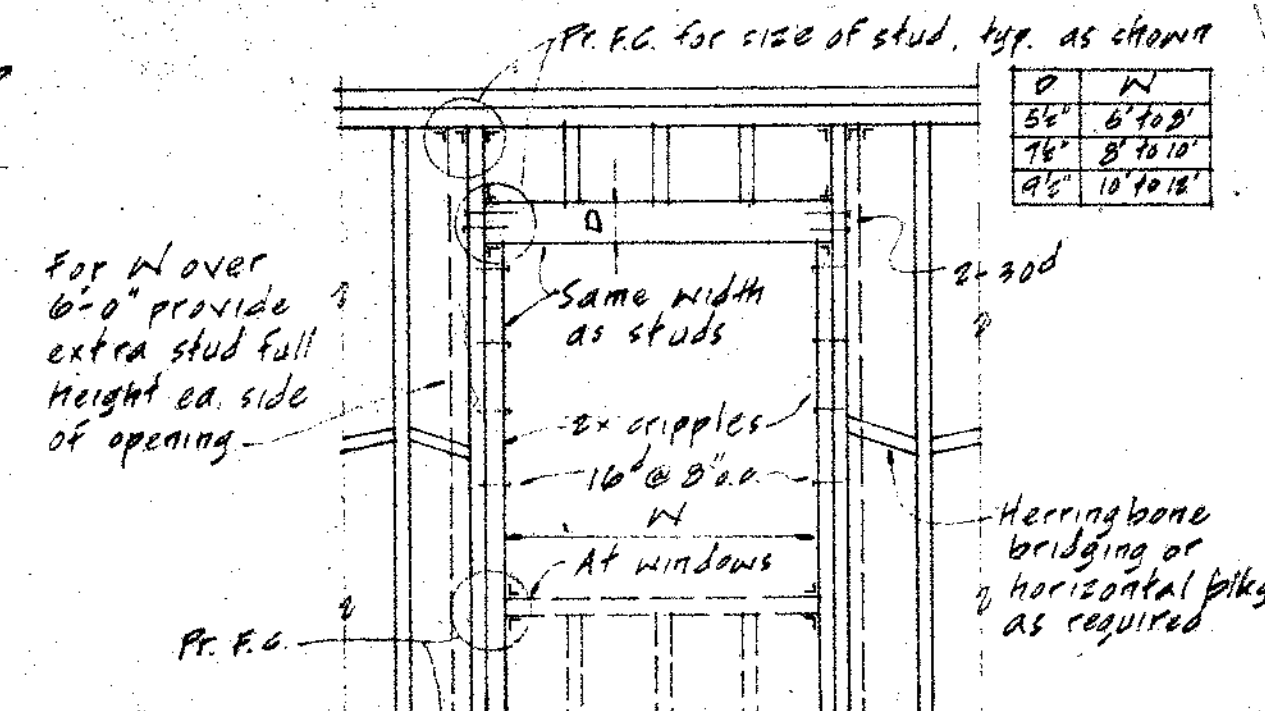 Pr. F.C. for size of stud, typ. as shown
D W
5½" 6' to 8'
7½" 8' to 10'
9½" 10' to 12'
D
For W over
6'-0" provide
extra stud full
height ea. side
of opening
2-30d
Same width
as studs
2x cripples
16d @ 8" o.c.
W
At windows
Herringbone
bridging or
horizontal blkg
as required
Pr. F.C.